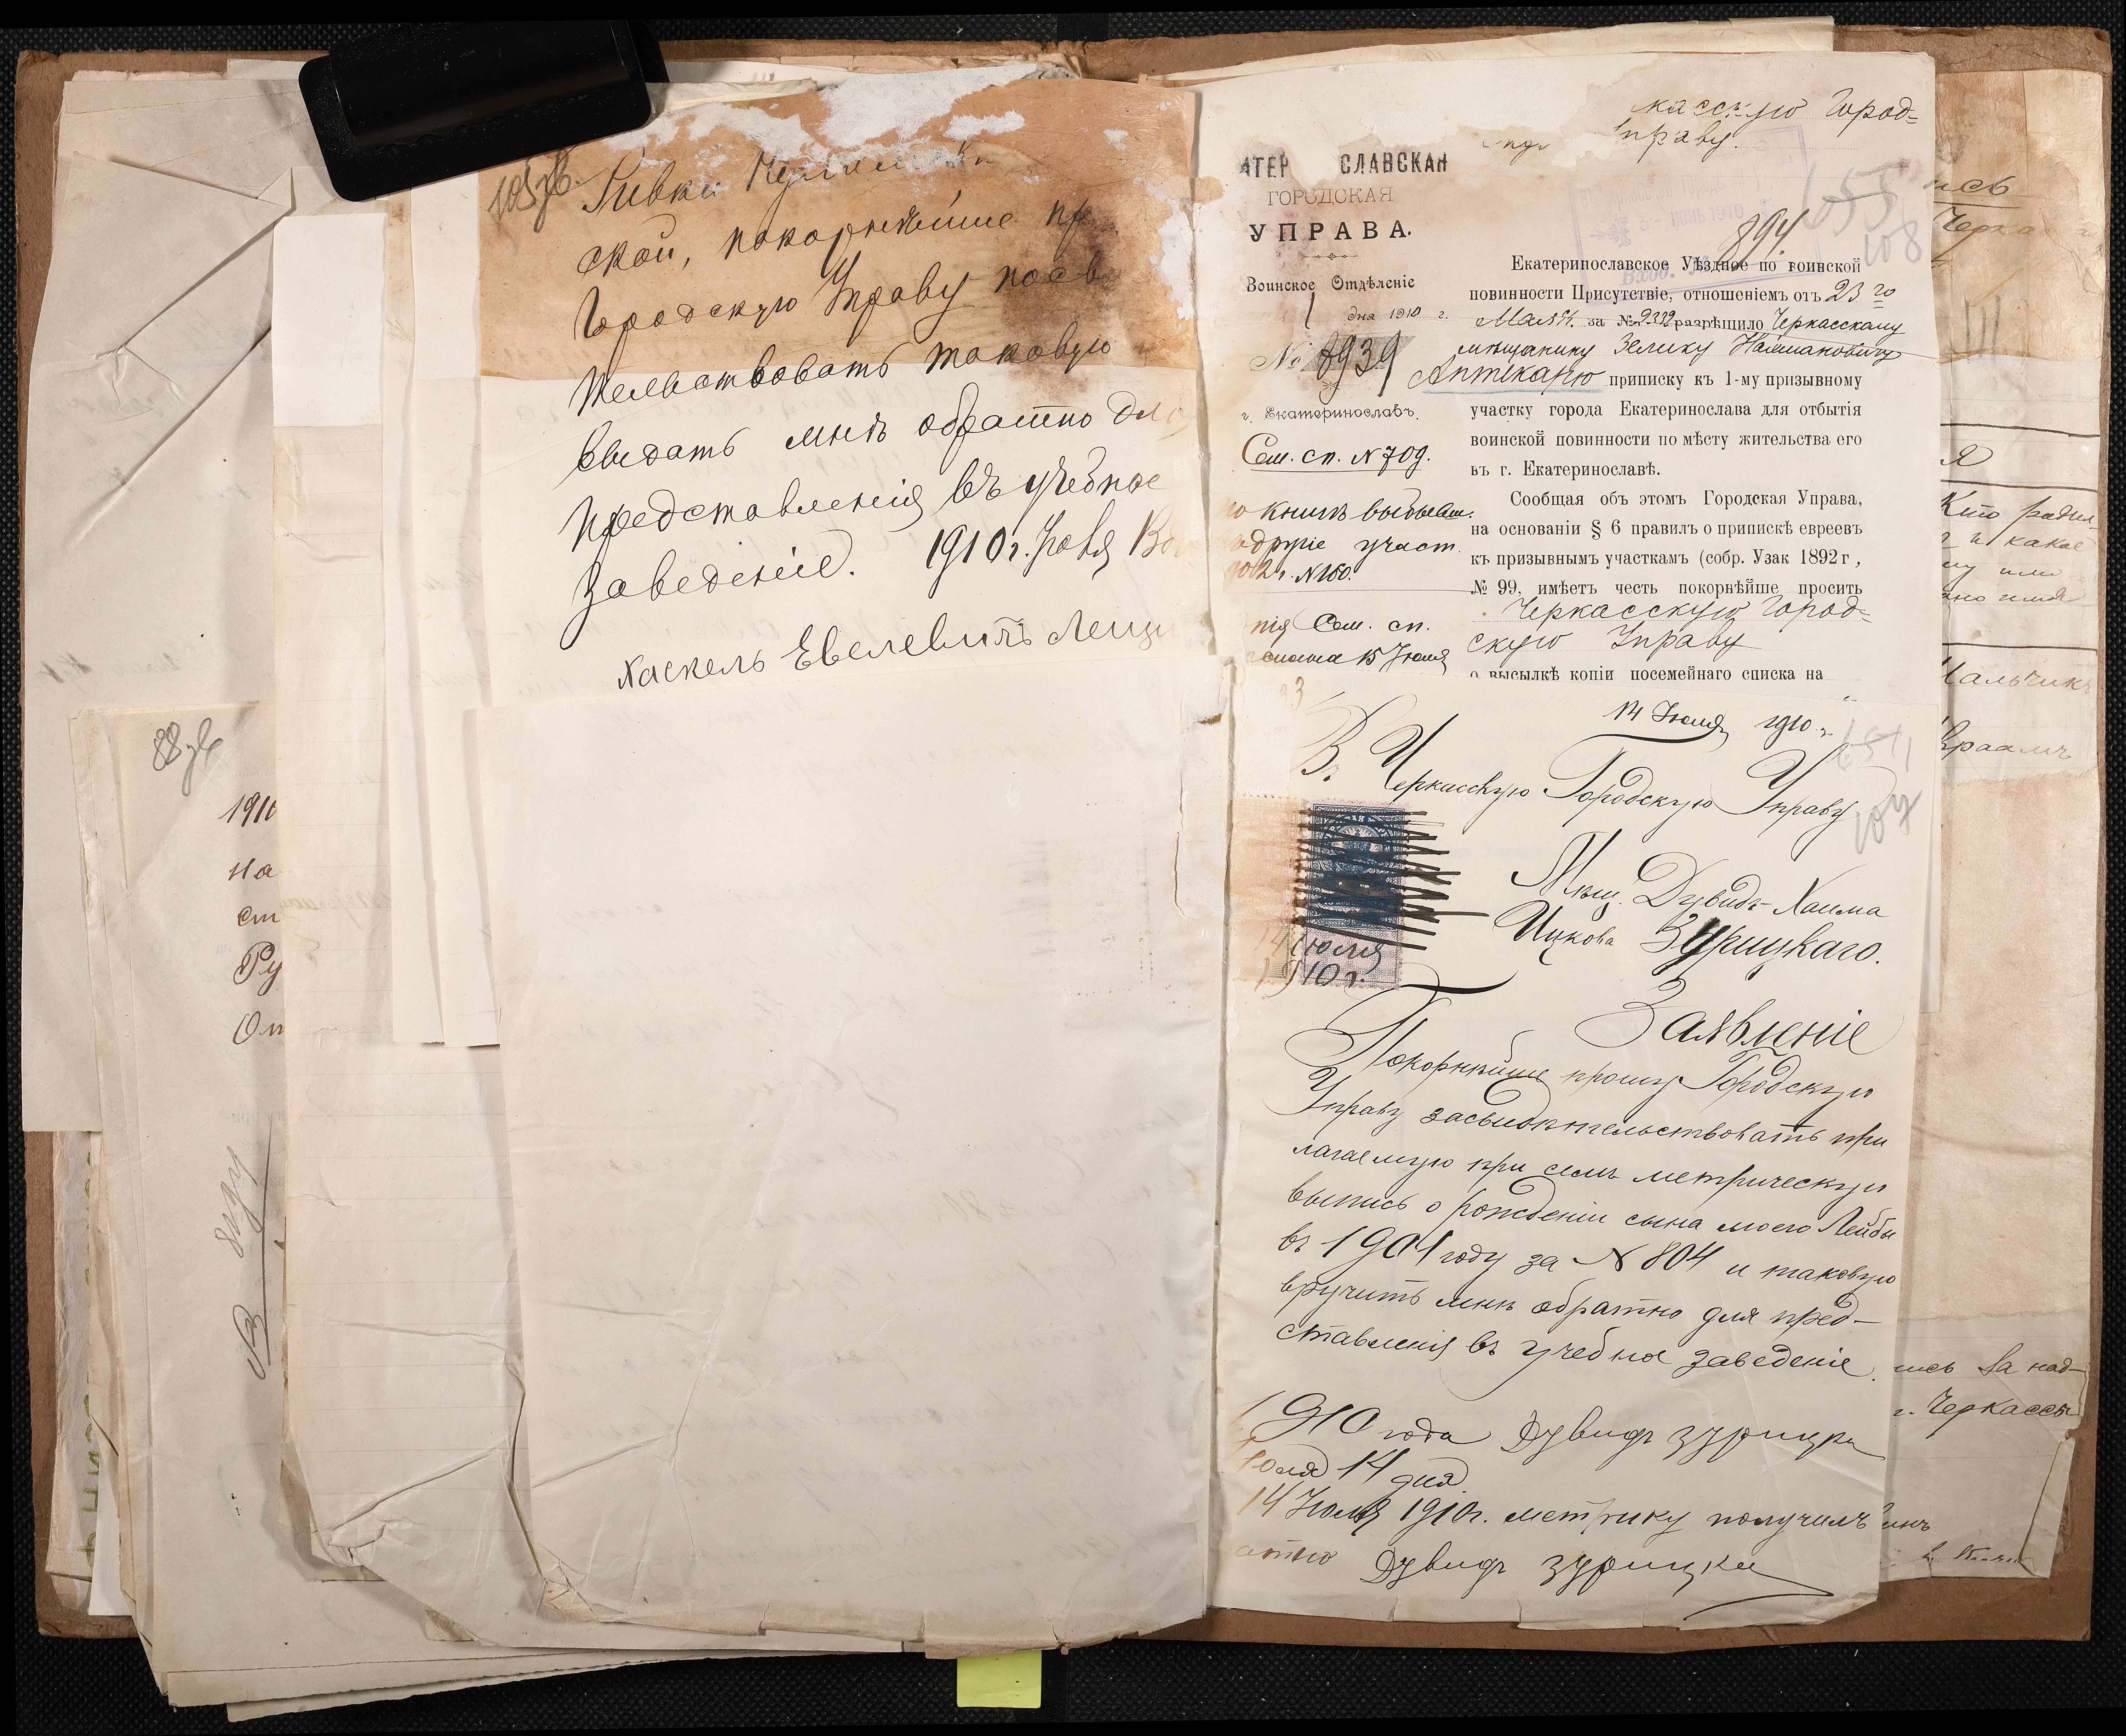 105 зв.
Ривки
ской, покорнѣйше пр
Городскую Управу засв
тельствовать таковую
выдать мнѣ обратно для
представленія въ учебное
заведеніе. 1910 г. Іюля
Хаскель Евелевичъ Лещи
88 зв
1910
на
ст
Ру
От
касскую Город=
Управу.
АТЕР СЛАВСКАЯ
ГОРОДСКАЯ
УПРАВА.
Воинское Отдѣленіе
1 дня 1910 г.
№ 8939
г. Екатеринославъ.
Сем. сп. № 709.
по книгѣ выбывш.
въ другіе участ.
1902 г. № 160.
нія Сем. сп.
15 Іюля
655
108
894
Екатеринославское Уѣздное по воинской
повинности Присутствіе, отношеніемъ отъ 23 го
Мая за № 9332 разрѣшило Черкасскому
мѣщанину Зелику Наймановичу
Аптекарю приписку къ 1-му призывному
участку города Екатеринослава для отбытія
воинской повинности по мѣсту жительства его
въ г. Екатеринославѣ.
Сообщая объ этомъ Городская Управа,
на основаніи § 6 правилъ о припискѣ евреевъ
къ призывнымъ участкамъ (собр. Узак 1892 г,
№ 99, имѣетъ честь покорнѣйше просить
Черкасскую Город=
скую Управу
о высылкѣ копіи посемейнаго списка на
14 Іюля 1910 г.
107
Въ Черкасскую Городскую Управу
Мѣщ. Дувидъ-Хаима
Ицкова Зурицкаго.
14 Іюля
1910 г.
Заявленіе
Покорнѣйше прошу Городскую
Управу засвидѣтельствовать при
лагаемую при семъ метрическую
выпись о рожденіи сына моего Лейбы
въ 1901 году за № 804 и таковую
вручить мнѣ обратно для пред-
ставленія въ учебное заведеніе.
1910 года Дувидъ Зурицки
Іюля 14 дня
14 Іюля 1910 г. метрику получилъ
обратно Дувидъ Зурицки
ись
Черка
я
Кто родил-
и какое
ему или
но имя
Мальчикъ
Авраамъ
ись за над-
г. Черкассы